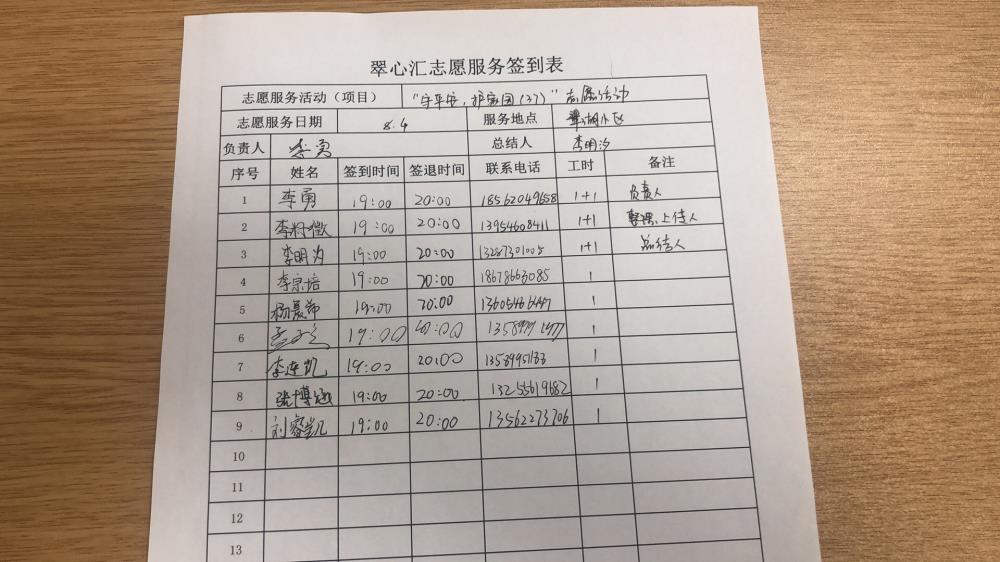 翠心汇志愿服务签到表
志愿服务活动（项目） "守平安，护家园(37)"志愿活动
志愿服务日期 8.4 服务地点 翠湖小区
负责人 李勇 总结人 李明汐
序号 姓名 签到时间 签退时间 联系电话 工时 备注
1 李勇 19:00 20:00 18562049658 1+1 负责人
2 19:00 20:00 13954608411 1+1 上传人
3 李明汐 19:00 20:00 13287301005 1+1 总结人
4 李宗培 19:00 20:00 18678663085 1
5 杨晨 19:00 20:00 1
6 19:00 20:00 1
7 李连凯 19:00 20:00 1
8 张博 19:00 20:00 13255619682 1
9 刘睿凯 19:00 20:00 13562273706 1
10
11
12
13